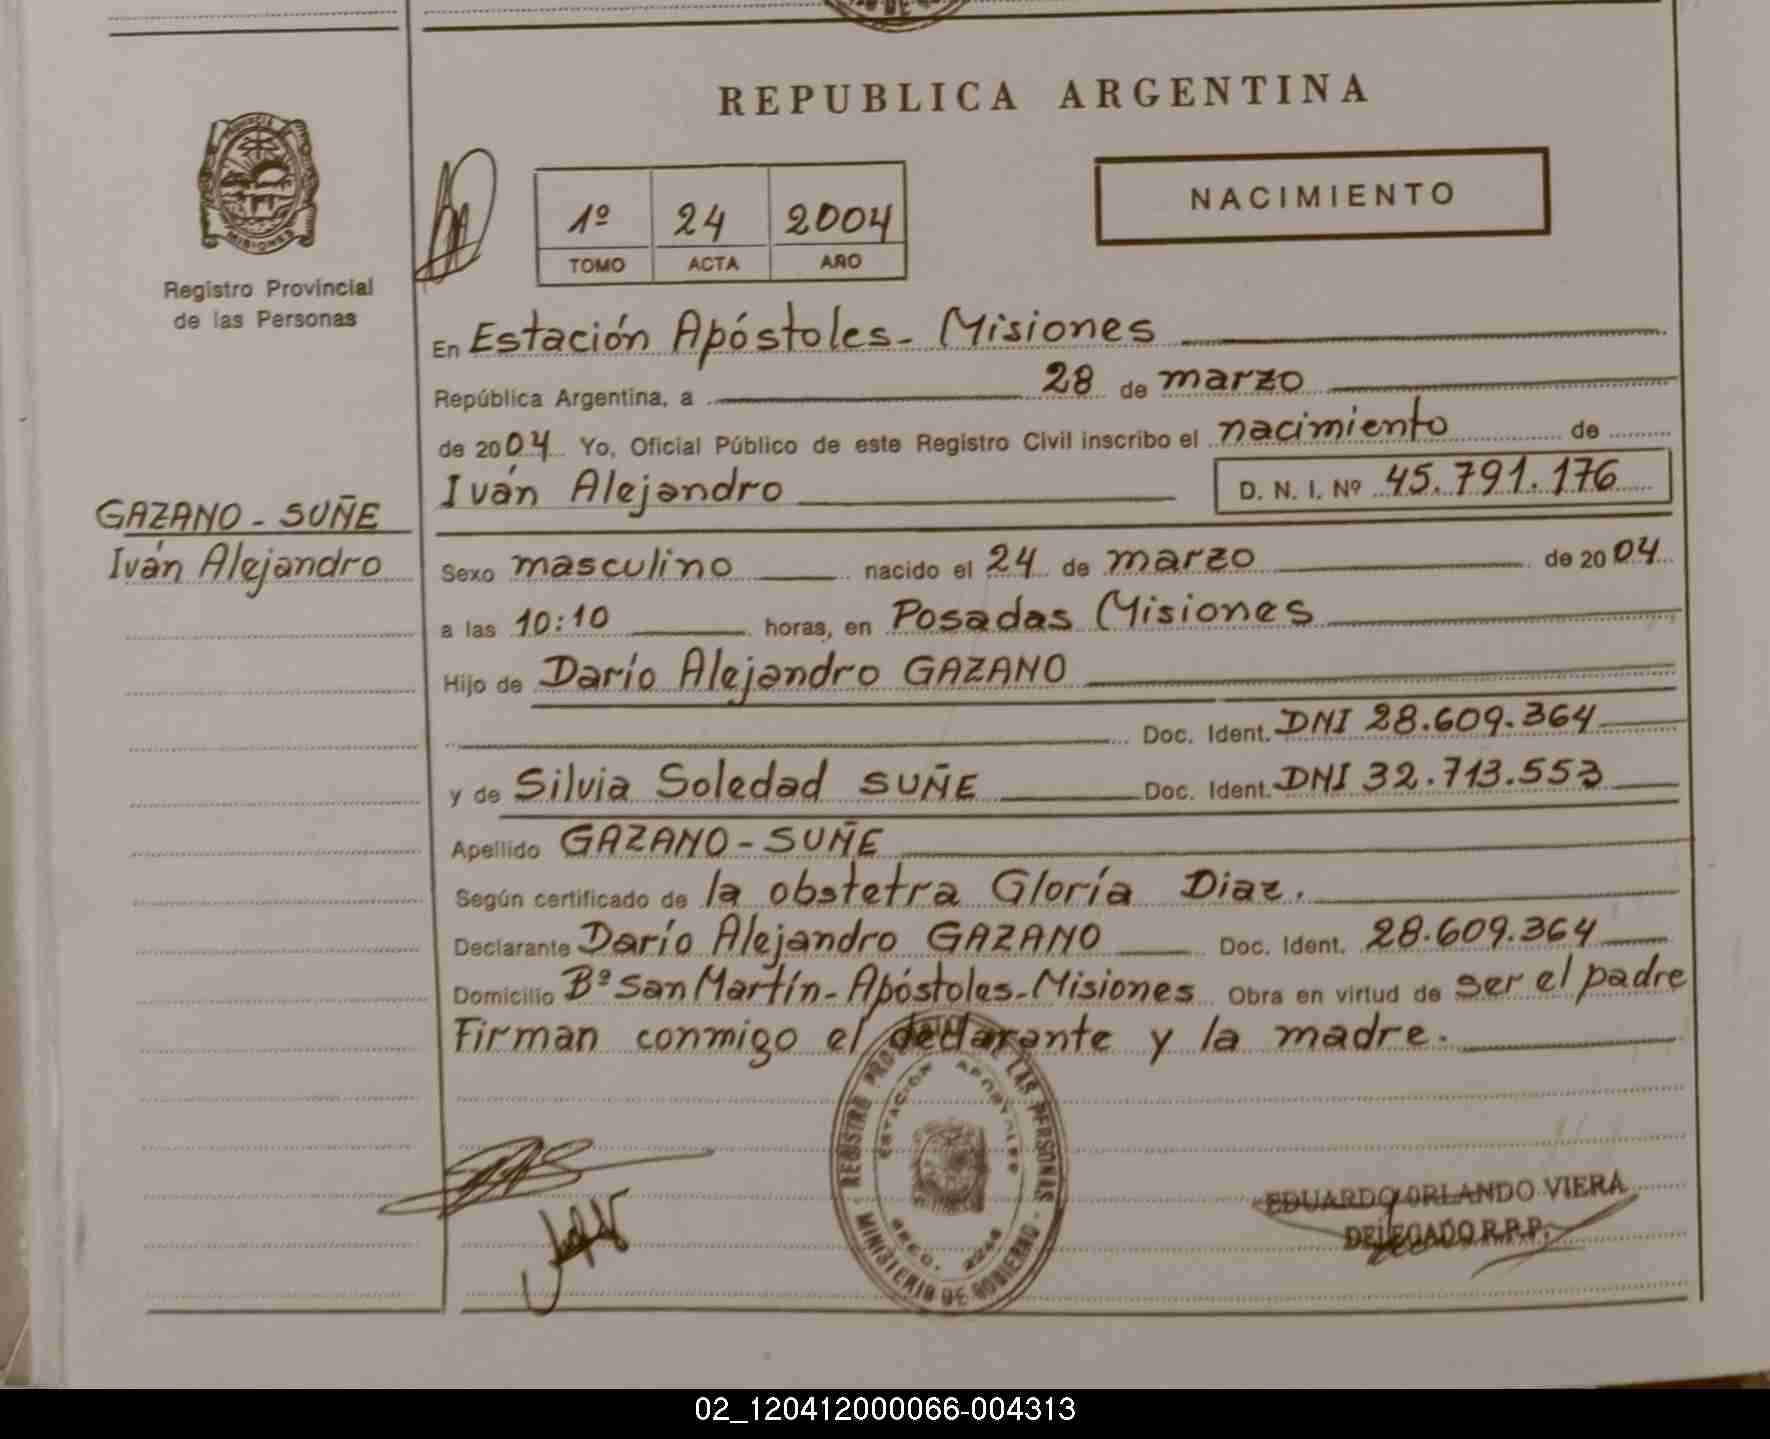 REPUBLICA ARGENTINA
PROVINCIA DE
MISIONES
Registro Provincial
de las Personas
1º 24 2004
TOMO ACTA AÑO
NACIMIENTO
En Estación Apóstoles - Misiones
República Argentina, a 28 de marzo
de 2004 Yo, Oficial Público de este Registro Civil inscribo el nacimiento de
Iván Alejandro D. N. I. Nº 45.791.176
GAZANO - SUÑE
Iván Alejandro
Sexo masculino nacido el 24 de marzo de 2004
a las 10:10 horas, en Posadas Misiones
Hijo de Darío Alejandro GAZANO
Doc. Ident. DNI 28.609.364
y de Silvia Soledad SUÑE Doc. Ident. DNI 32.713.553
Apellido GAZANO - SUÑE
Según certificado de la obstetra Gloría Diaz.
Declarante Darío Alejandro GAZANO Doc. Ident. 28.609.364
Domicilio Bº San Martín - Apóstoles - Misiones Obra en virtud de ser el padre
Firman conmigo el declarante y la madre.
REGISTRO LAS PERSONAS
ESTACION
MINISTERIO DE GOBIERNO
EDUARDO ORLANDO VIERA
DELEGADO R.P.P.
02_120412000066-004313